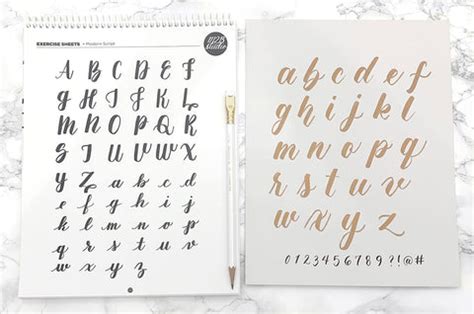 EXERCISE SHEETS • Modern Script
A B C D E F
G H I J K L
M N O P Q R
S T U V W X
Y Z a b c d
e f g h i j
k l m n o p
q r s t u v
w x y z
a b c d e f
g h i j k l
m n o p q
r s t u v
w x y z
0123456789?!@#